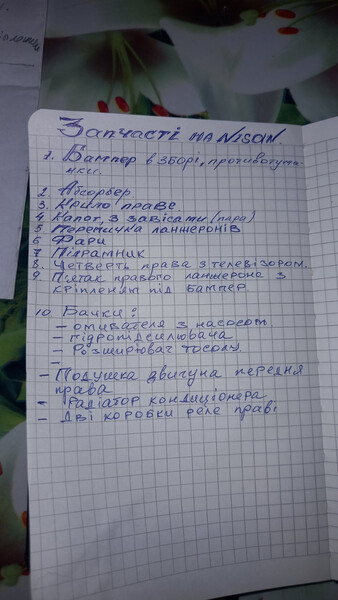 Запчасті на NISAN.
1. Бампер в зборі, противотуманки.
2 Абсорбер
3. Крило праве.
4 Капот, з завісами (пара)
5 Перемичка ланжеронів
6 Фари
7 Підрамник
8. Четверть права з телевізором.
9. П'ятак правого ланжерона з
кріпленям під бампер
10. Бачки:
- омивателя з насосом
- гідропідсилювача
- Розширювач тосолу.
-
- Подушка двигуна передня
права
- Радіатор кондиціонера
- Дві коробки реле праві